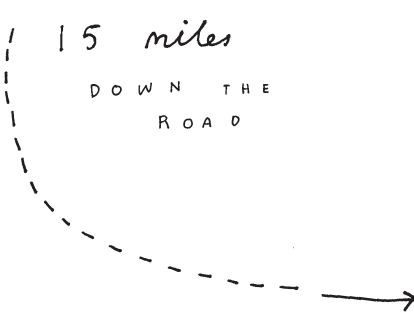 15 miles
DOWN THE
ROAD